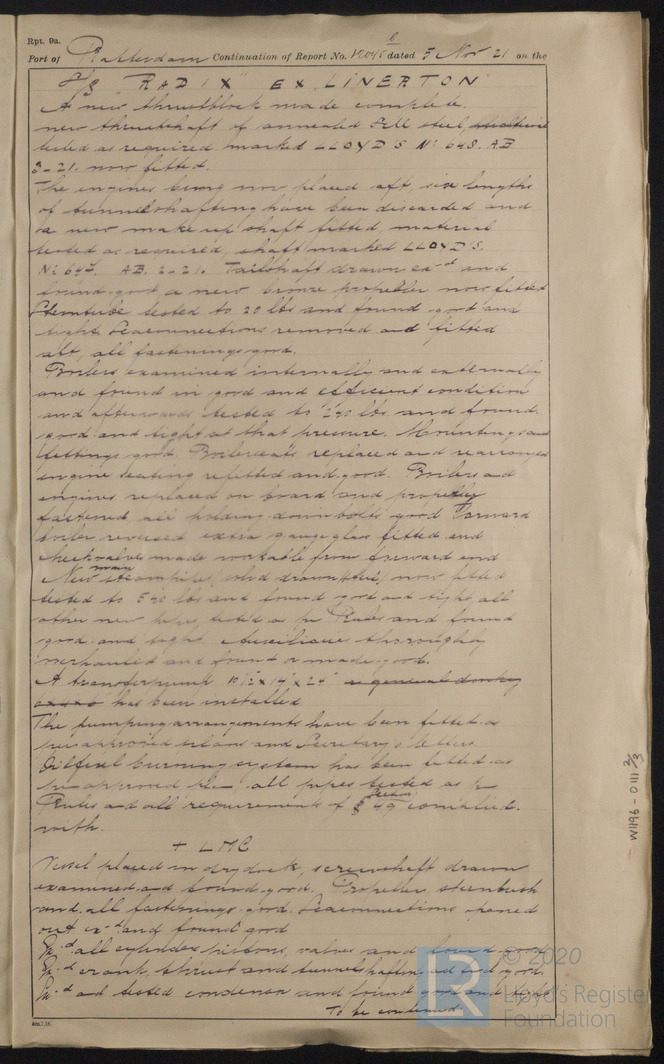 Rpt. 9a.
Port of Rotterdam Continuation of Report No. 12045 6 dated 5 Nov 21 on the
S/S "RADIX" EX "LINERTON"
A new thrustblock made complete.
new thrustshaft of annealed steel
tested as required marked LLOYD'S No 648. AB
3-21. now fitted.
The engines being now placed aft, six lengths
of tunnelshafting have been discarded and
a new make up shaft fitted, material
tested as required, shaft marked LLOYD'S.
No AB. 2-21. Tailshaft drawn ex-d and
found good, a new bronze propeller now fitted
Sterntube tested to 20 lbs and found good and
tight. Seaconnections removed and fitted
aft, all fastenings good.
Boilers examined internally and externally
and found in good and efficient condition
and afterwards tested to lbs and found
good and tight at that pressure. Mountings and
fittings good. Boilerseats replaced and rearranged
engine seating refitted and good. Boilers and
engines replaced on board and properly
fastened all holding down bolts good Forward
boiler reversed extra gaugeglass fitted and
checkvalves made workable from forward end
New main steampipes, solid drawn, now fitted
tested to 540 lbs and found good and tight, all
other new pipes, tested as pr Rules and found
good and tight. Auxiliaries thoroughly
overhauled and found or made good.
A transferpump 10"x14"x24" as general donkey
has been installed
The pumping arrangements have been fitted as
per approved plans and Secretary's letters.
Oilfuel burning system has been fitted as
pr approved plan, all pipes tested as pr
Rules and all requirements of Section 49 complied
with.
+ LMC
Vessel placed in drydock, screwshaft drawn
examined and found good. Propeller, sternbush
and all fastenings good. Seaconnections opened
out ex-d and found good
Ex-d all cylinders pistons, valves and found good
Ex-d crank, thrust and tunnelshafting and good.
Ex-d and tested condenser and found good and tight
To be continued
W1196-0111 2/3
© 2020
Lloyd's Register
Foundation